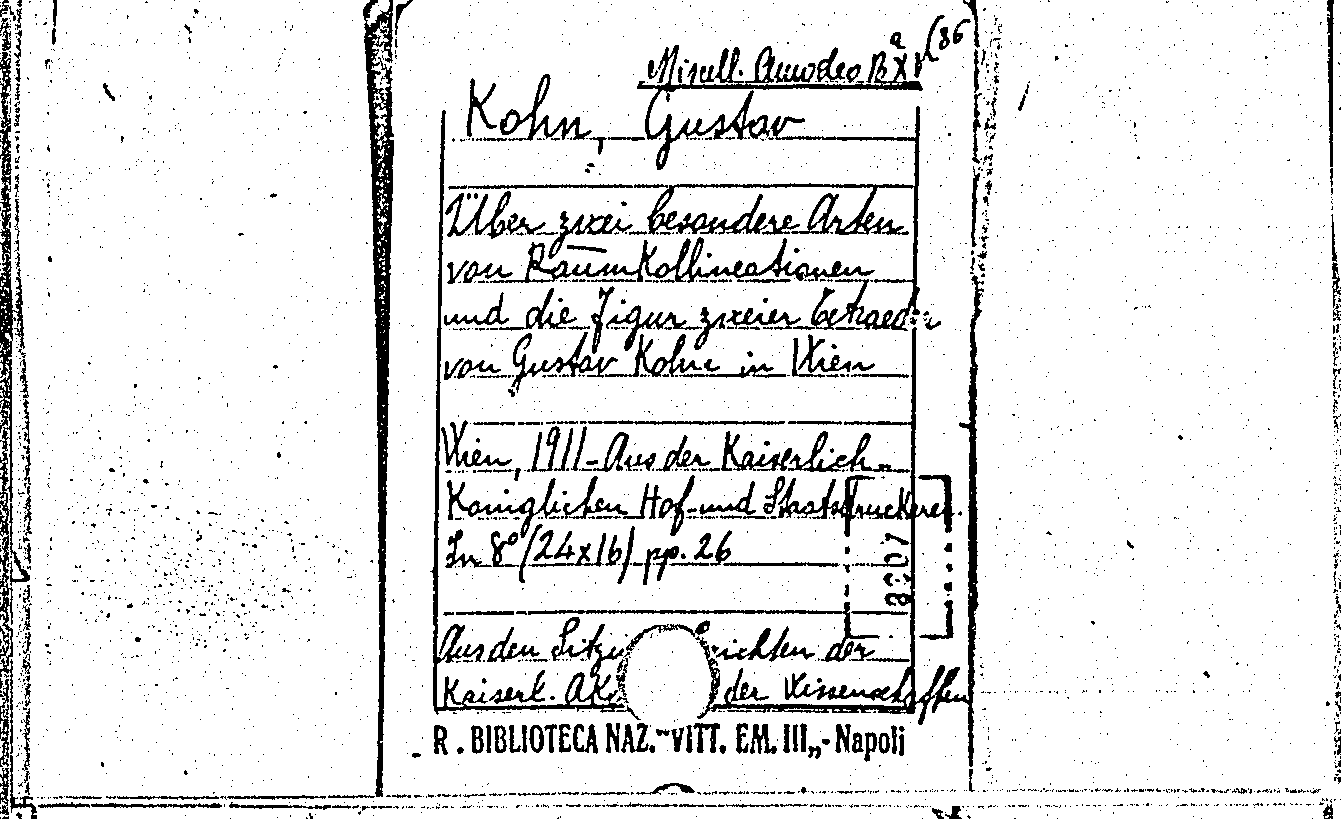 Miscell. Amodeo B a X V (86
Kohn, Gustav
Über zwei besondere Arten
von Raumkollineationen
und die Figur zweier Tetraeder
von Gustav Kohn in Wien
Wien, 1911 - Aus der Kaiserlich-
Königlichen Hof-und Staatsdruckerei.
In 8° (24x16) pp. 26
8207
Aus den richten der
Kaiserl. der Wissenschaften
R. BIBLIOTECA NAZ. "VITT. EM. III„ - Napoli